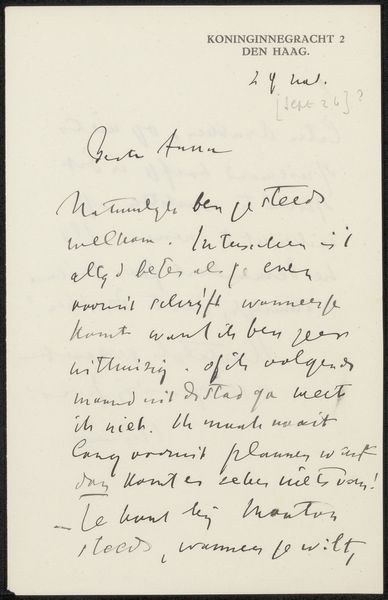 KONINGINNEGRACHT 2
DEN HAAG.
Beste Anna
Natuurlijk ben je steeds
welkom. Intusschen is 't
altijd beter als je even
vooruit schrijft wanneer je
komt want ik ben zeer
uithuizig. Of ik volgende
maand uit de stad ga weet
ik niet. Ik maak nooit
lang vooruit plannen want
dan komt er zeker niets van!
– Je kunt bij
steeds, wanneer je wilt,